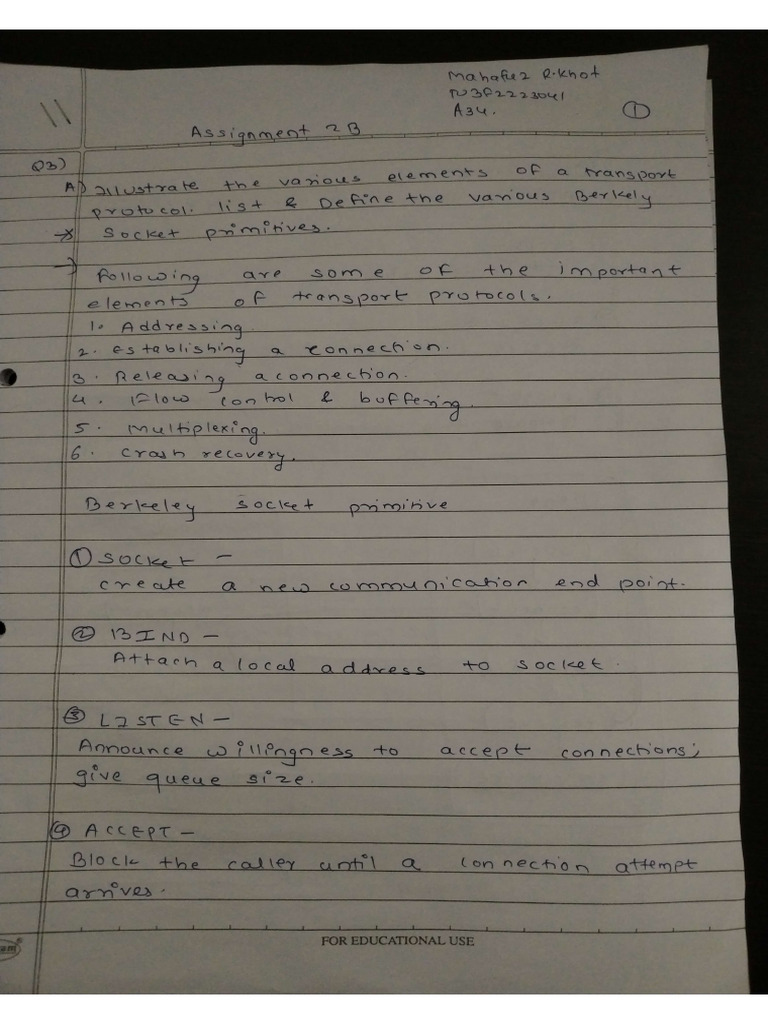 Mahafuz R. Khot
A34.
1
11
Assignment 2B
Q3)
A) illustrate the various elements of a transport
protocol. list & Define the various Berkely
Socket primitives.
→ Following are some of the important
elements of transport protocols.
1. Addressing.
2. Establishing a connection.
3. Releasing a connection.
4. Flow control & buffering.
5. Multiplexing.
6. Crash recovery.
Berkeley socket primitive
① SOCKET -
create a new communication end point.
② BIND -
Attach a local address to socket.
③ LISTEN -
Announce willingness to accept connections;
give queue size.
④ ACCEPT -
Block the caller until a connection attempt
arrives.
FOR EDUCATIONAL USE